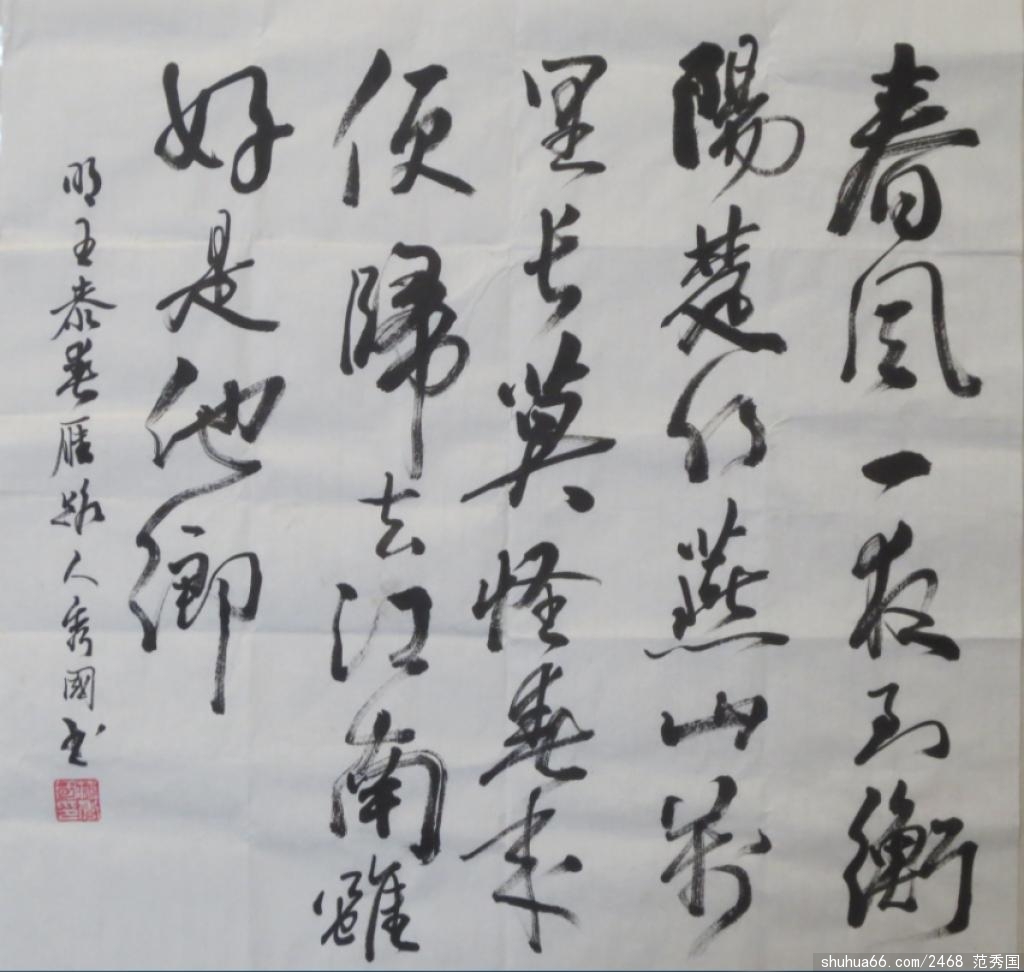 春風一夜到衡
陽楚水燕山萬
里长莫怪春来
便歸去江南雖
好是他鄉
明王恭春雁路人秀國书
shuhua66.com/2468 范秀国